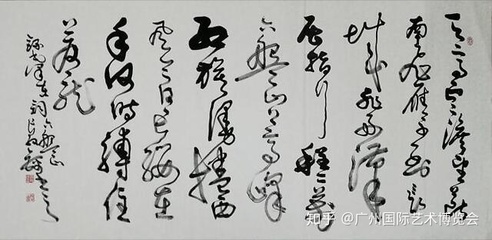 天高云淡望断
南飞雁不到长
城非好汉
屈指行程二万
六盘山上高峰
红旗漫捲西
风今日长缨在
手何时缚住
苍龙
录毛泽东词六盘山
知乎 @广州国际艺术博览会